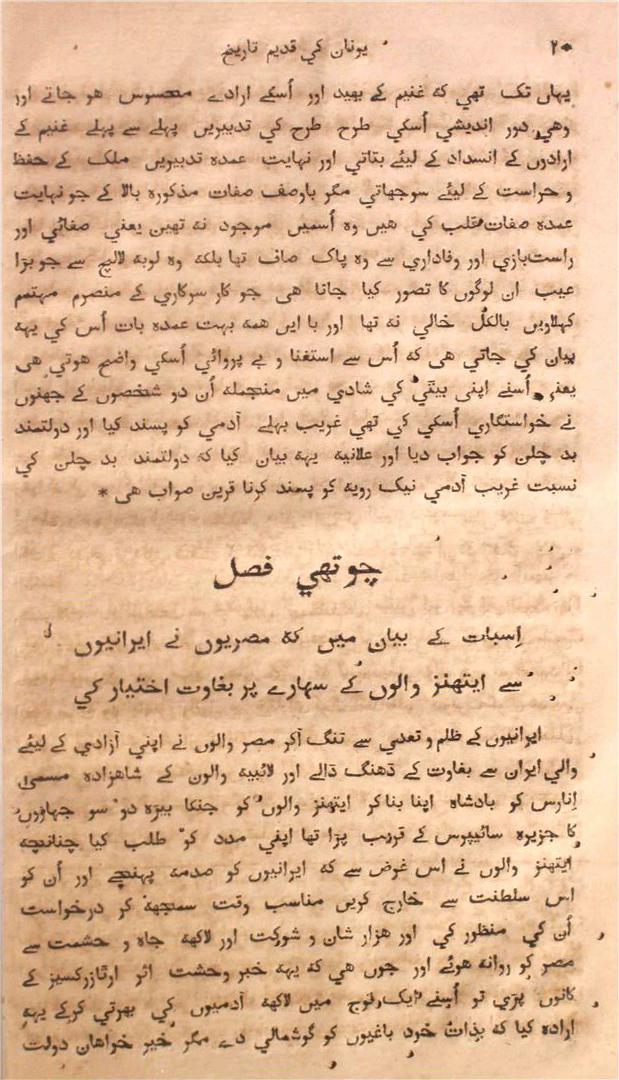 ۲۰ یونان کي قدیم تاریخ
یہاں تک تھي کہ غنیم کے بھید اور اُسکے ارادے محسوس ھو جاتے اور
وھي دور اندیشي اُسکي طرح طرح کي تدبیریں پہلے سے پہلے غنیم کے
ارادوں کے انسداد کے لیئے بتاتي اور نہایت عمدہ تدبیریں ملک کے حفظ
و حراست کے لیئے سوجھاتي مگر باوصف صفات مذکورہ بالا کے جو نہایت
عمدہ صفات قلب کي ھیں وہ اُسمیں موجود نہ تھیں یعني صفائي اور
راست‌بازي اور وفاداري سے وہ پاک صاف تھا بلکہ وہ لوبھ لالچ سے جو بڑا
عیب ان لوگوں کا تصور کیا جاتا ھی جو کار سرکاري کے منصرم مہتمم
کہلاویں بالکل خالي نہ تھا اور با ایں ھمہ بہت عمدہ بات اُس کي یہہ
بیان کي جاتي ھی کہ اُس سے استغنا و بے پروائي اُسکي واضح ھوتي ھی
یعني اُسنے اپني بیٹي کي شادي میں منجملہ اُن دو شخصوں کے جھنوں
نے خواستگاري اُسکي کي تھي غریب بھلے آدمي کو پسند کیا اور دولتمند
بد چلن کو جواب دیا اور علانیہ یہہ بیان کیا کہ دولتمند بد چلن کي
نسبت غریب آدمي نیک رویہ کو پسند کرنا قرین صواب ھی *
چوتھي فصل
اِسبات کے بیان میں کہ مصریوں نے ایرانیوں
سے ایتھنز والوں کے سہارے پر بغاوت اختیار کي
ایرانیوں کے ظلم و تعدي سے تنگ آکر مصر والوں نے اپني آزادي کے لیئے
والي ایران سے بغاوت کے ڈھنگ ڈالے اور لائیبیہ والوں کے شاھزادہ مسمی
اِنارس کو بادشاہ اپنا بناکر ایتھنز والوں کو جنکا بیڑہ دو سو جہازوں
کا جزیرہ سائیپرس کے قریب پڑا تھا اپني مدد کو طلب کیا چنانچہ
ایتھنز والوں نے اس غرض سے کہ ایرانیوں کو صدمہ پہنچے اور اُن کو
اس سلطنت سے خارج کریں مناسب وقت سمجھہ کر درخواست
اُن کي منظور کي اور ھزار شان و شوکت اور لاکھہ جاہ و حشمت سے
مصر کو روانہ ھوئے اور جوں ھي کہ یہہ خبر وحشت اثر ارتازرکسیز کے
کانوں پڑي تو اُسنے ایک فوج میں لاکھہ آدمیوں کي بھرتي کرکے یہہ
ارادہ کیا کہ بذات خود باغیوں کو گوشمالي دے مگر خیر خواھان دولت